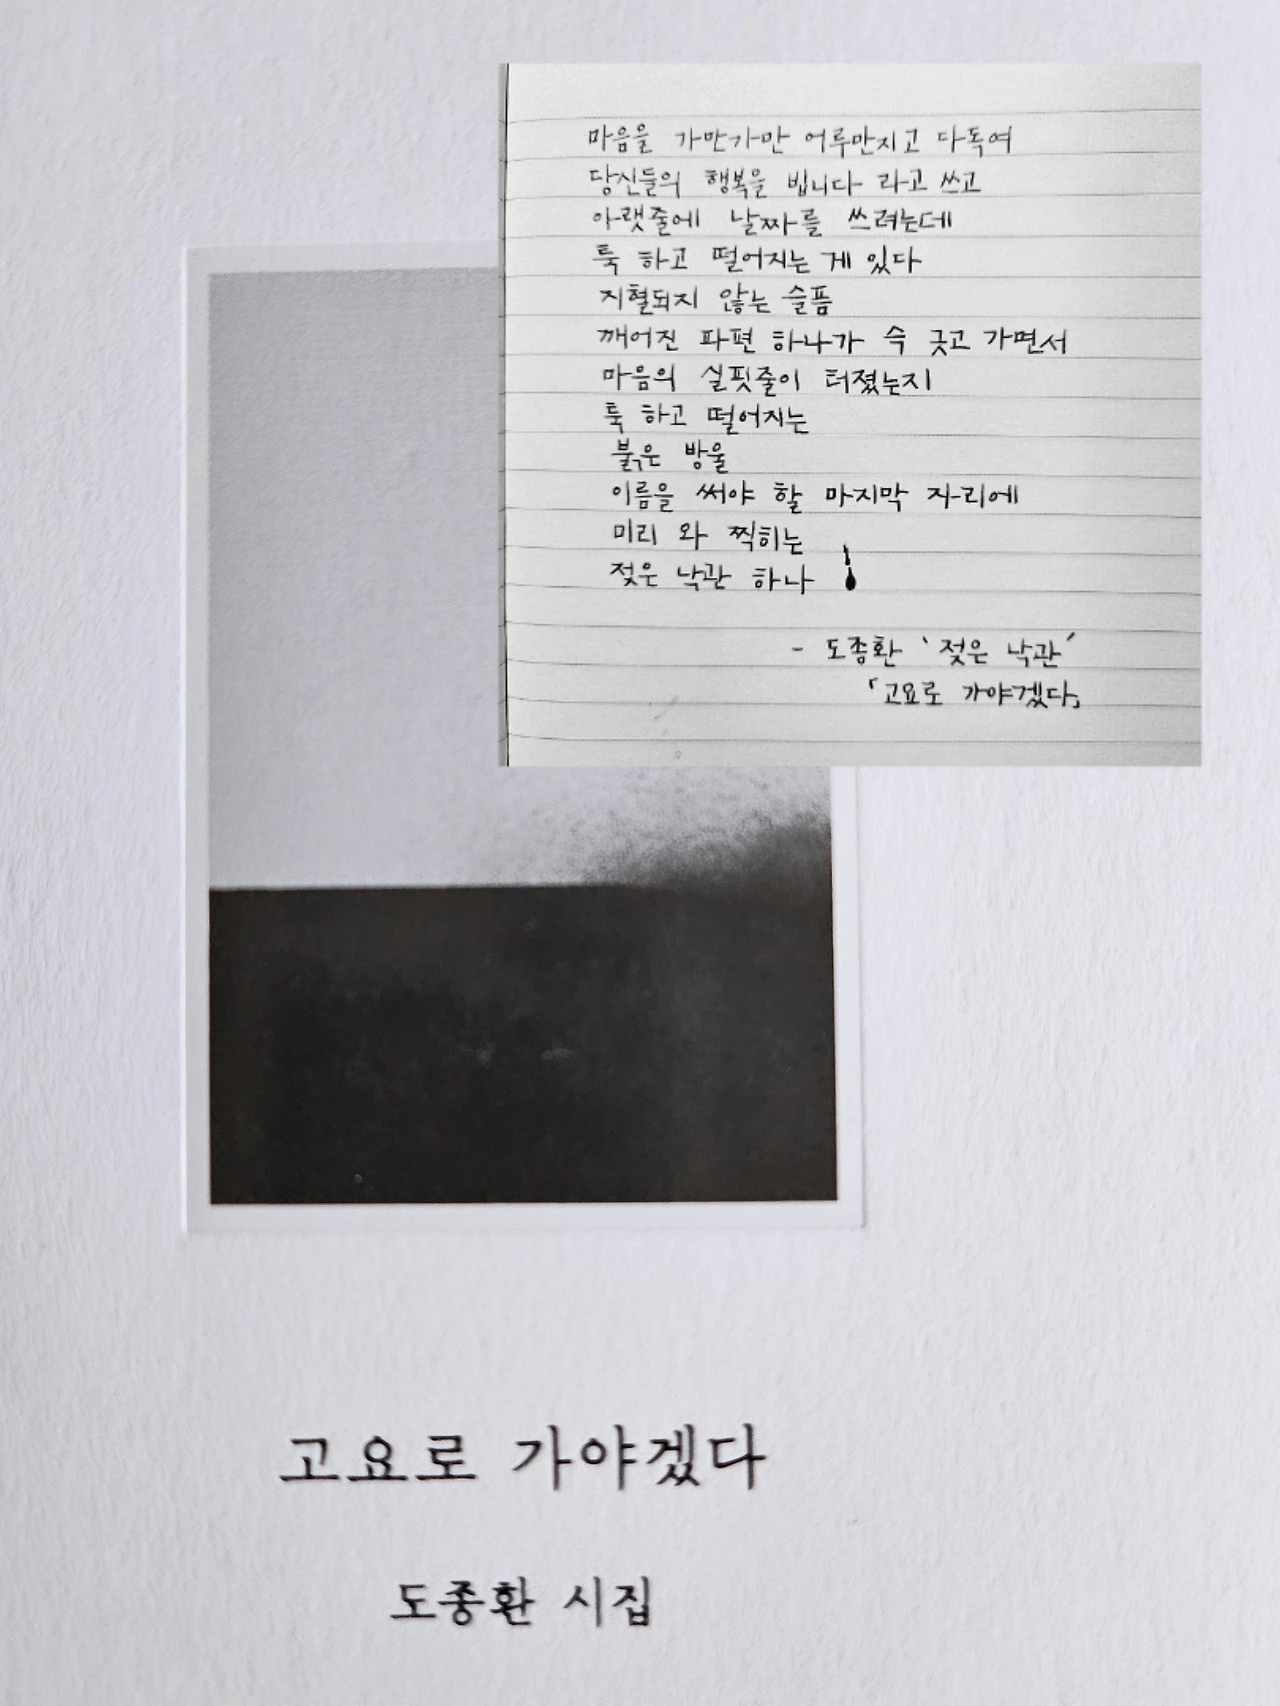 마음을 가만가만 어루만지고 다독여
당신들의 행복을 빕니다 라고 쓰고
아랫줄에 날짜를 쓰려는데
툭 하고 떨어지는 게 있다
지혈되지 않는 슬픔
깨어진 파편 하나가 슥 긋고 가면서
마음의 실핏줄이 터졌는지
툭 하고 떨어지는
붉은 방울
이름을 써야 할 마지막 자리에
미리 와 찍히는
젖은 낙관 하나
- 도종환 '젖은 낙관'
「고요로 가야겠다」
고요로 가야겠다
도종환 시집